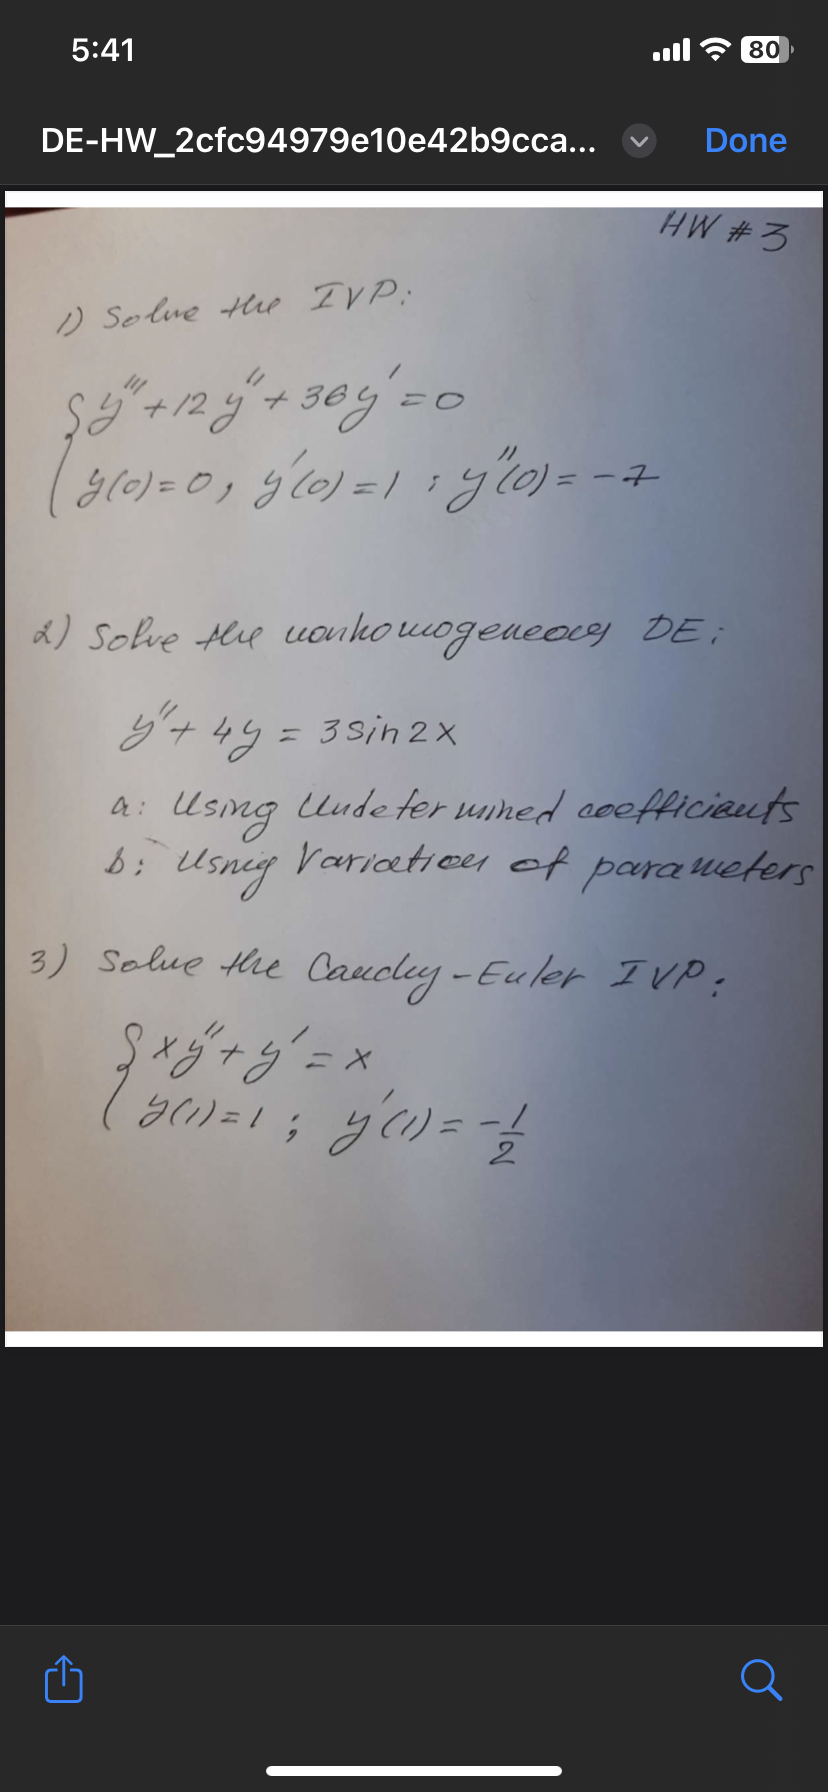 5:41
80
DE-HW_2cfc94979e10e42b9cca...
Done
HW # 3
1) Solve the IVP:
y''' + 12y'' + 36y' = 0
y(0) = 0, y'(0) = 1 ; y''(0) = -7
2) Solve the nonhomogeneous DE:
y'' + 4y = 3 sin 2x
a: Using Undetermined coefficients
b: Usnig Variation of parameters
3) Solve the Cauchy-Euler IVP:
xy'' + y' = x
y(1) = 1 ; y'(1) = -1/2